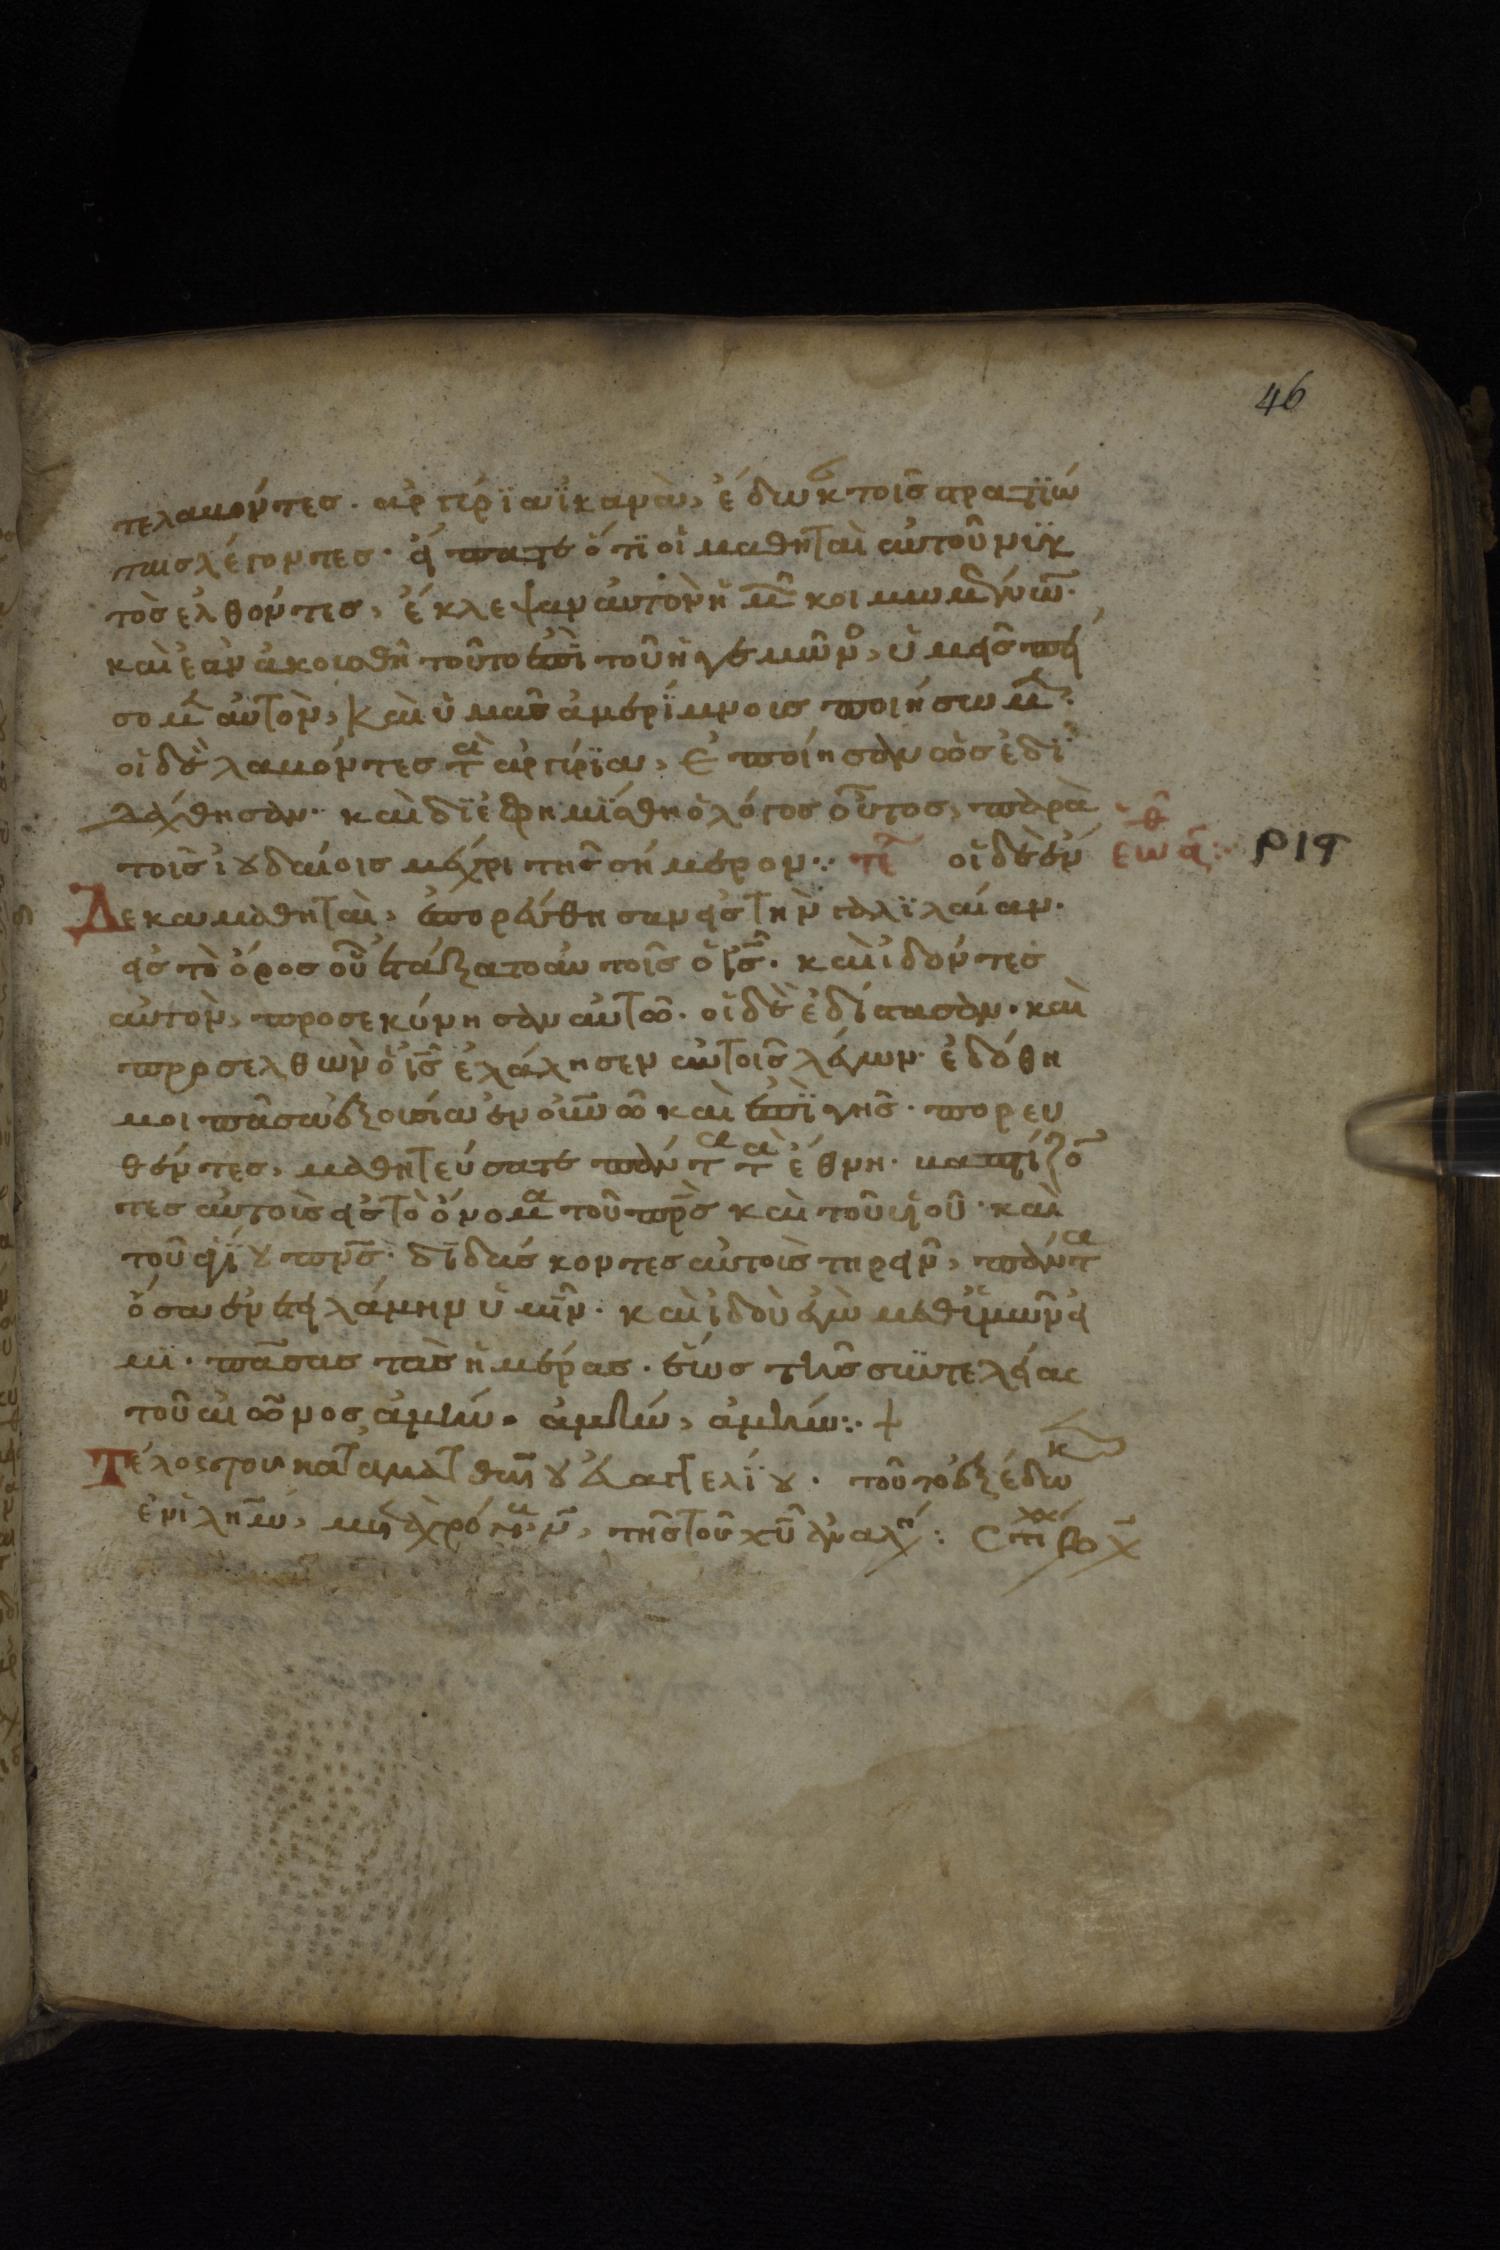 46
τελαμόντες. ἀργύρϊα ϊκανὰ, ἔδωκ τοῖς στρατϊώ
ταις λέγοντες. εἴπατε ὅτϊ οἱ μαθηταὶ αὐτοῦ νϋκ
τὸς ἐλθόντες, ἔκλεψαν αὐτὸν ἡμ κοιμωμένων.
καὶ ἐὰν ἀκουσθῆ τοῦτο ἐπὶ τοῦ ἡγεμῶνο, ἡμεῖς πεί
σομ αὐτὸν, καὶ ὑμᾶς ἀμερίμνους ποιήσωμ.
οἱ δὲ λαβόντες τὰ ἀργύρϊα, ἐποίησαν ὡς ἐδϊ
δάχθησαν. καὶ δϊεφημίσθη ὁ λόγος οὗτος, παρὰ
τοῖς ἰουδαίοις μέχρι τῆς σήμερον: οἱ δὲ ἕν ἑωθ ά: ΡΙϚ
Δεκα μαθηταὶ, ἐπορεύθησαν εἰς τὴν γαλιλαίαν.
εἰς τὸ ὄρος οὗ ἐτάξατο αὐτοῖς ὁ ις. καὶ ἰδόντες
αὐτὸν, προσεκύνησαν αὐτῶ. οἱ δὲ ἐδίστασαν. καὶ
προσελθὼν ὁ ις ἐλάλησεν αὐτοῖς λέγων. ἐδόθη
μοι πᾶσα ἐξουσία ἐν ουνω καὶ ἐπὶ γῆς. πορευ
θέντες, μαθητεύσατε πάντα τὰ ἔθνη. βαπτίζο
τες αὐτοὺς εἰς τὸ ὄνομα τοῦ πρς καὶ τοῦ υἱοῦ. καὶ
τοῦ ἁγίου πνς. διδάσκοντες αὐτοὺς τηρεῖν, πάντα
ὅσα ἐνετειλάμην ὑμῖν. καὶ ἰδοὺ ἐγὼ μεθ ὑμῶν εἰ
μϊ. πάσας τὰς ἡμέρας. ἕως τῆς συντελείας
τοῦ αἰῶνος, ἀμήν. ἀμήν, ἀμήν: +
Τέλος του κατα ματθαιου ευαγγελίου. τοῦτο ἐξεδω
ἐν ιλημ, μετὰ χρόνους η, τῆς τοῦ χυ ἀναλή: στι βχ